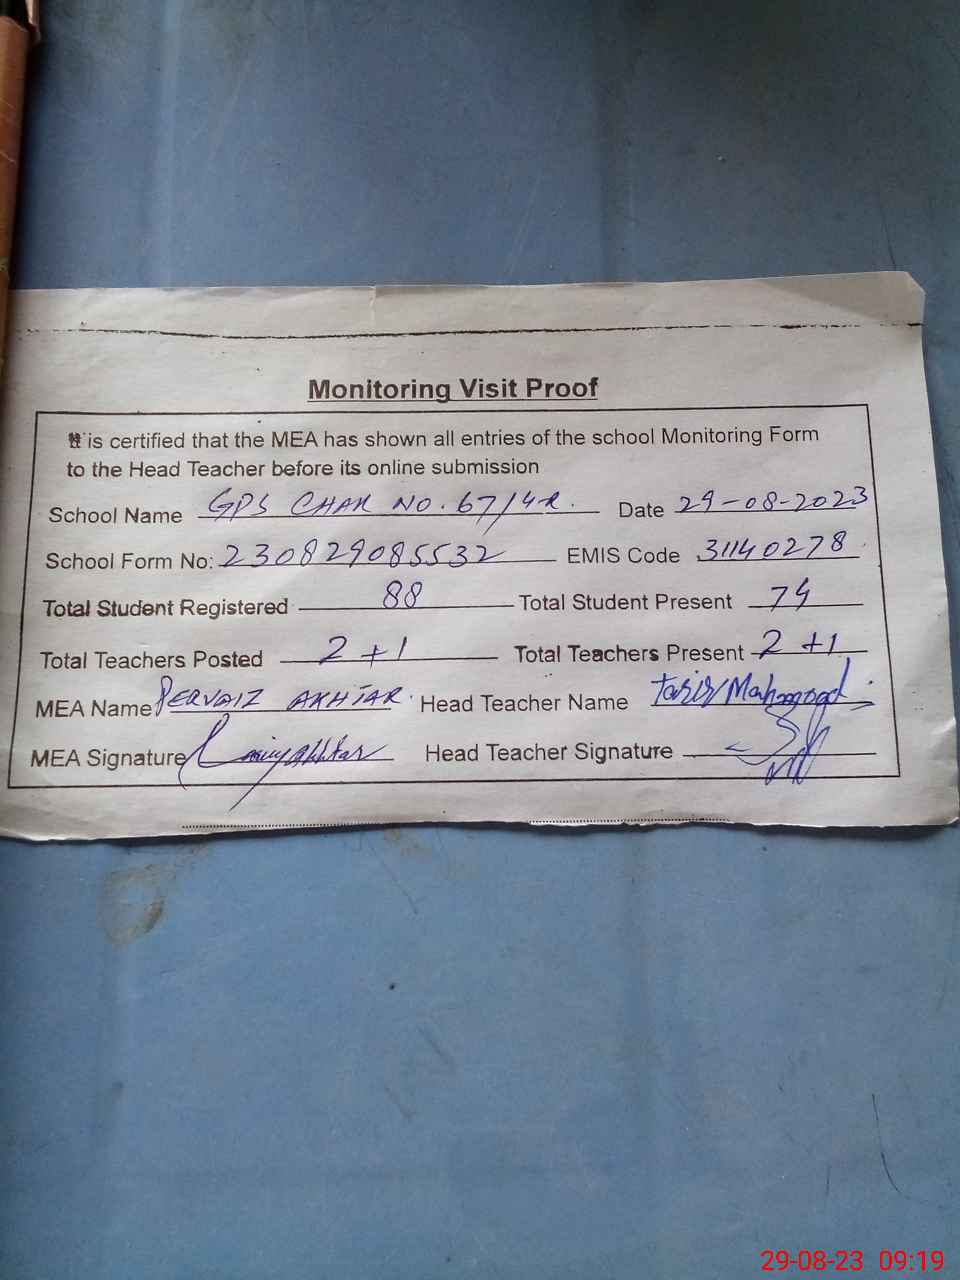 Monitoring Visit Proof
It is certified that the MEA has shown all entries of the school Monitoring Form
to the Head Teacher before its online submission
School Name GPS CHAK NO. 67/4R. Date 29-08-2023
School Form No: 230829085532 EMIS Code 31140278
Total Student Registered 88 Total Student Present 74
Total Teachers Posted 2+1 Total Teachers Present 2+1
MEA Name PERVAIZ AKHTAR Head Teacher Name Mahmood
MEA Signature Head Teacher Signature
29-08-23 09:19